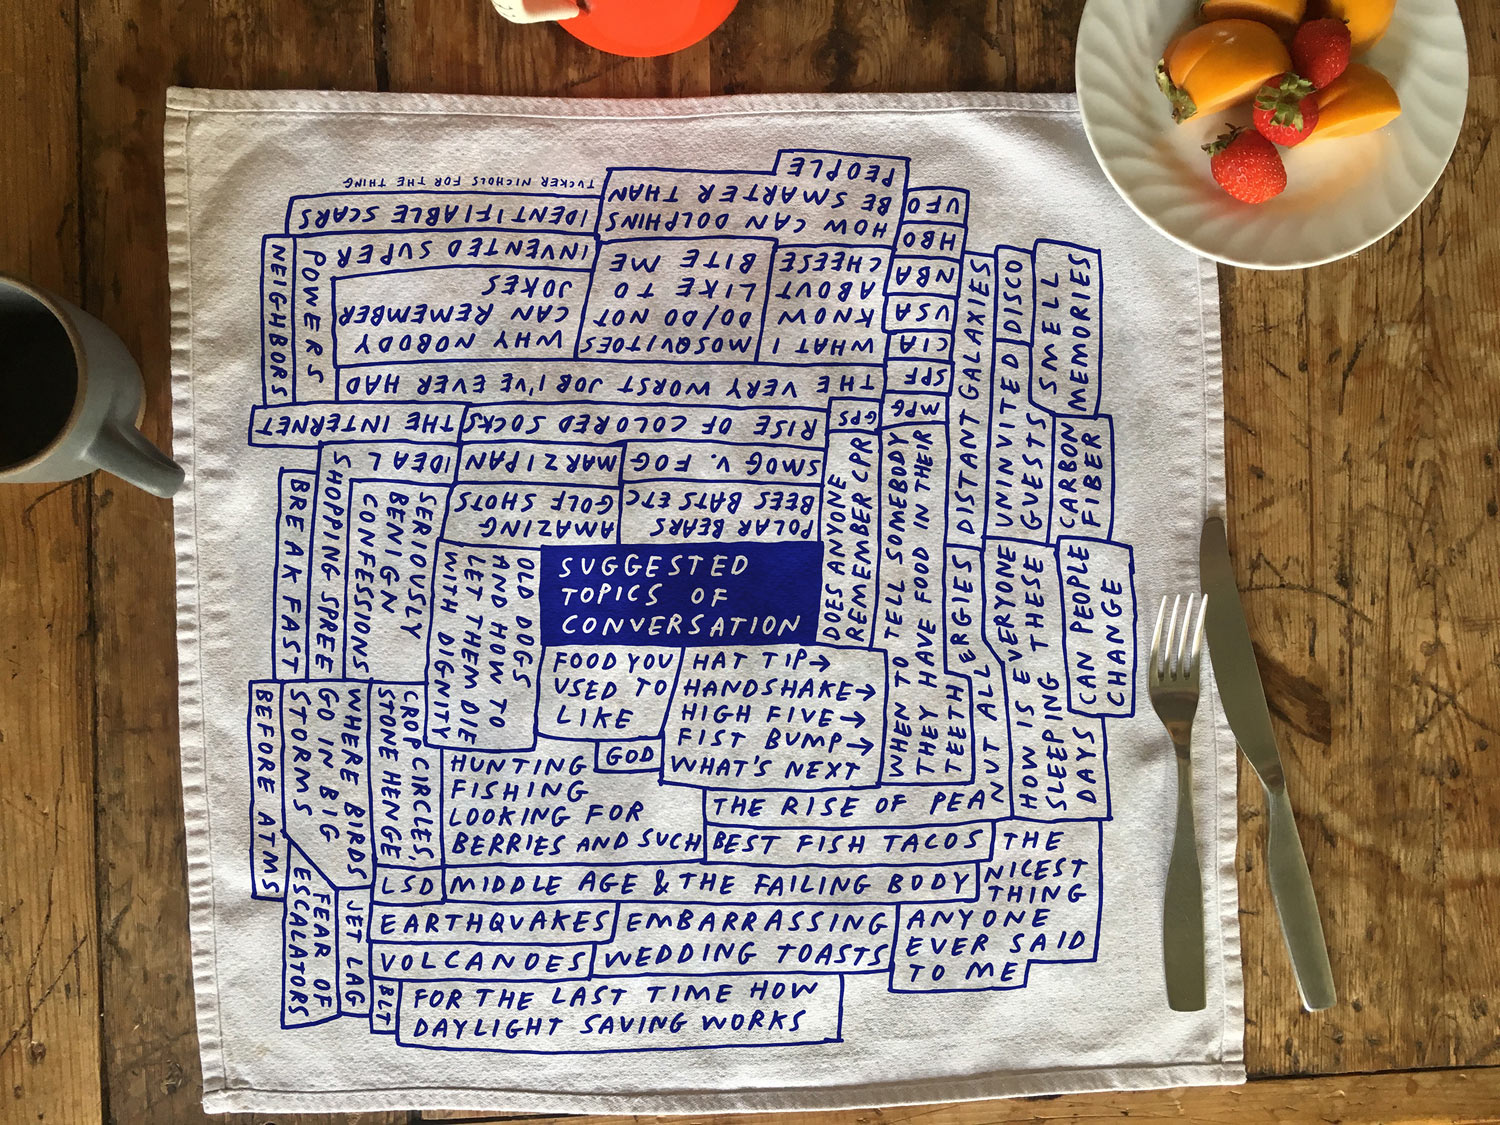 SUGGESTED
TOPICS OF
CONVERSATION
FOOD YOU
USED TO
LIKE
GOD
HAT TIP→
HANDSHAKE→
HIGH FIVE→
FIST BUMP→
WHAT'S NEXT
HUNTING
FISHING
LOOKING FOR
BERRIES AND SUCH
THE RISE OF PEANUT ALLERGIES
BEST FISH TACOS
THE
NICEST
THING
ANYONE
EVER SAID
TO ME
LSD
MIDDLE AGE & THE FAILING BODY
EARTHQUAKES
EMBARRASSING
WEDDING TOASTS
VOLCANOES
FOR THE LAST TIME HOW
DAYLIGHT SAVING WORKS
BLT
JET LAG
FEAR OF
ESCALATORS
WHERE BIRDS
GO IN BIG
STORMS
BEFORE ATMS
CROP CIRCLES,
STONE HENGE
OLD DOGS
AND HOW TO
LET THEM DIE
WITH DIGNITY
SERIOUSLY
BENIGN
CONFESSIONS
IDEAL
SHOPPING SPREE
BREAKFAST
THE INTERNET
NEIGHBORS
INVENTED SUPER
POWERS
IDENTIFIABLE SCARS
TUCKER NICHOLS FOR THE THING
WHY NOBODY
CAN REMEMBER
JOKES
MOSQUITOES
DO/DO NOT
LIKE TO
BITE ME
WHAT I
KNOW
ABOUT
CHEESE
HOW CAN DOLPHINS
BE SMARTER THAN
PEOPLE
THE VERY WORST JOB I'VE EVER HAD
RISE OF COLORED SOCKS
SMOG V. FOG
MARZIPAN
AMAZING
GOLF SHOTS
POLAR BEARS
BEES BATS ETC
UFO
HBO
NBA
USA
CIA
SPF
MPG
GPS
DOES ANYONE
REMEMBER CPR
WHEN TO TELL SOMEBODY
THEY HAVE FOOD IN THEIR
TEETH
DISTANT GALAXIES
DISCO
UNINVITED
GUESTS
SMELL
MEMORIES
CARBON
FIBER
HOW IS EVERYONE
SLEEPING THESE
DAYS
CAN PEOPLE
CHANGE